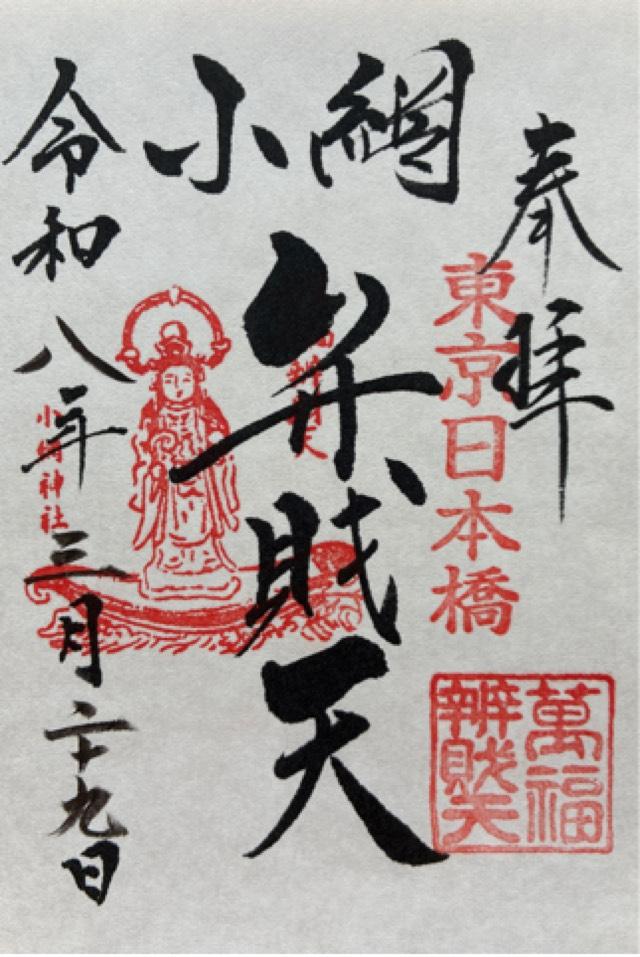 奉拝
東京日本橋
萬福
辨財天
小網
弁財天
令和八年三月二十九日
小網神社